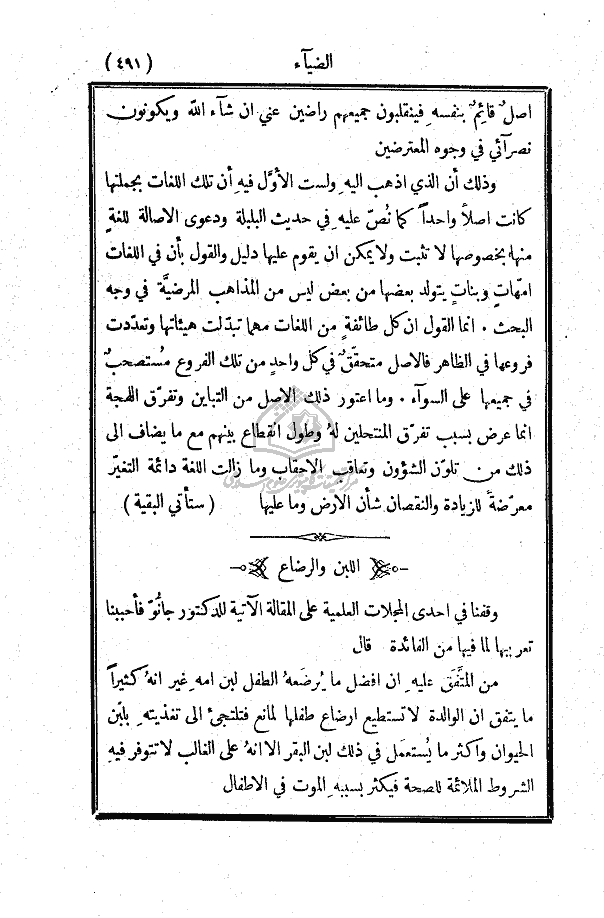 الضيآء
(٤٩١)
اصلٌ قائمٌ بنفسهِ فينقلبون جميعهم راضين عني ان شآء الله ويكونون
نصرآئي في وجوه المعترضين
وذلك أن الذي اذهب اليهِ ولست الأوَّل فيهِ أن تلك اللغات بجملتها
كانت اصلاً واحداً كما نُصّ عليهِ في حديث البلبلة ودعوى الاصالة للغةٍ
منها بخصوصها لا تثبت ولا يمكن ان يقوم عليها دليل والقول بأن في اللغات
امهاتٍ وبناتٍ يتولد بعضها من بعض ليس من المذاهب المرضيَّة في وجه
البحث . انما القول ان كل طائفةٍ من اللغات مهما تبدّلت هيئاتها وتعدّدت
فروعها في الظاهر فالاصل متحقّقٌ في كل واحدٍ من تلك الفروع مُستصحَبٌ
في جميعها على السوآء . وما اعتور ذلك الاصل من التباين وتفرّق اللهجة
انما عرض بسبب تفرّق المنتحلين لهُ وطول انقطاع بينهم مع ما يضاف الى
ذلك من تلوّن الشؤون وتعاقب الاحقاب وما زالت اللغة دائمة التغيّر
معرّضةً للزيادة والنقصان شأن الارض وما عليها (ستأتي البقية)
اللبن والرضاع
وقفنا في احدى المجلات العلمية على المقالة الآتية للدكتور جانُّو فأحببنا
تعريبها لما فيها من الفائدة قال
من المتَّفَق عليهِ ان افضل ما يُرضَعهُ الطفل لبن امهِ غير انهُ كثيراً
ما يتفق ان الوالدة لا تستطيع ارضاع طفلها لمانع فتلتجئ الى تغذيتهِ بلبن
الحيوان واكثر ما يُستعمَل في ذلك لبن البقر الا انهُ على الغالب لا تتوفر فيهِ
الشروط الملائمة للصحة فيكثر بسببهِ الموت في الاطفال